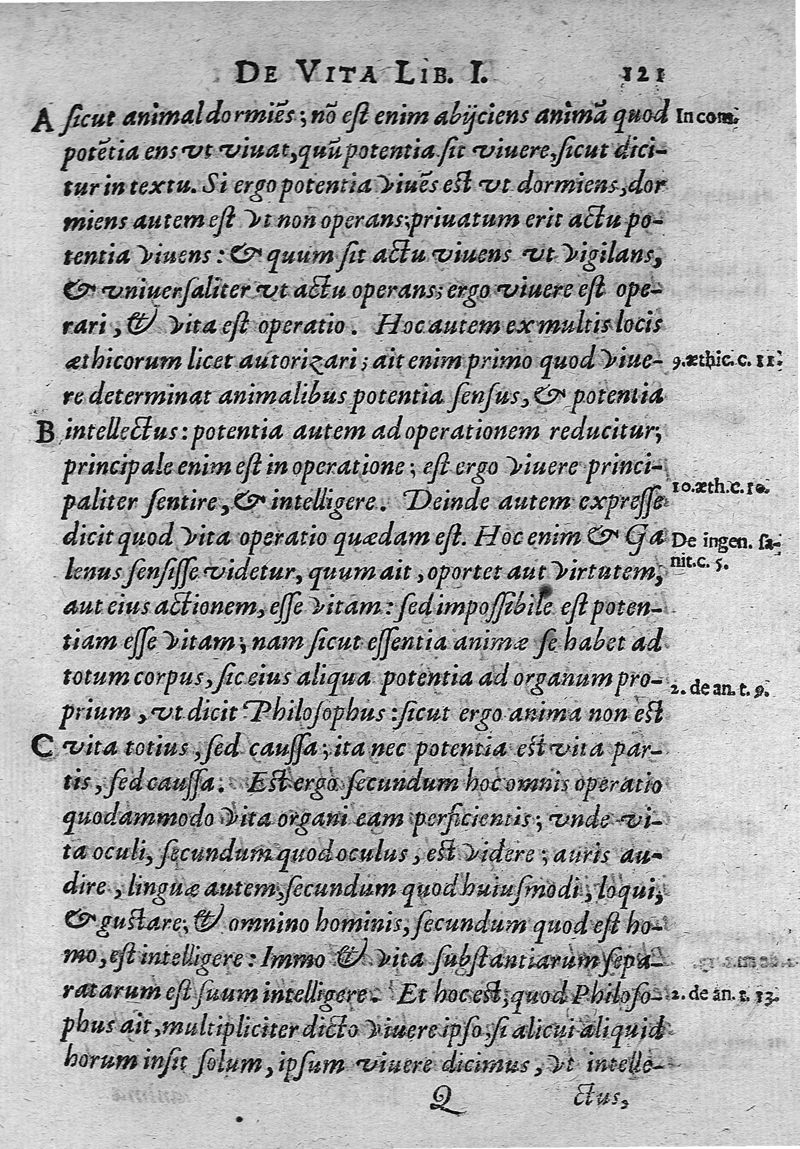 DE VITA LIB. I. 121
A ſicut animal dormiẽs; nõ eſt enim abijciens animã quod In com.
potẽtia ens vt viuat, quũ potentia ſit viuere, ſicut dici-
tur in textu. Si ergo potentia viuẽs eſt vt dormiens, dor
miens autem eſt vt non operans; priuatum erit actu po-
tentia viuens: & quum ſit actu viuens vt vigilans,
& vniuerſaliter vt actu operans; ergo viuere eſt ope-
rari, & vita eſt operatio. Hoc autem ex multis locis
æthicorum licet autorizari; ait enim primo quod viue- 9. æthic. c. 11.
re determinat animalibus potentia ſenſus, & potentia
B intellectus: potentia autem ad operationem reducitur;
principale enim eſt in operatione; eſt ergo viuere princi-
paliter ſentire, & intelligere. Deinde autem expreſſe 10. æth. c. 10.
dicit quod vita operatio quædam eſt. Hoc enim & Ga De ingen. ſa-
lenus ſenſiſſe videtur, quum ait, oportet aut virtutem, nit. c. 5.
aut eius actionem, eſſe vitam: ſed impoſſibile eſt poten-
tiam eſſe vitam; nam ſicut eſſentia animæ ſe habet ad
totum corpus, ſic eius aliqua potentia ad organum pro- 2. de an. t. 9.
prium, vt dicit Philoſophus: ſicut ergo anima non eſt
C vita totius, ſed cauſſa; ita nec potentia eſt vita par-
tis, ſed cauſſa. Eſt ergo ſecundum hoc omnis operatio
quodammodo vita organi eam perficientis; vnde vi-
ta oculi, ſecundum quod oculus, eſt videre; auris au-
dire, linguæ autem, ſecundum quod huiuſmodi, loqui,
& guſtare; & omnino hominis, ſecundum quod eſt ho-
mo, eſt intelligere: Immo & vita ſubſtantiarum ſepa-
ratarum eſt ſuum intelligere. Et hoc eſt, quod Philoſo- 2. de an. t. 13.
phus ait, multipliciter dicto viuere ipſo, ſi alicui aliquid
horum inſit ſolum, ipſum viuere dicimus, vt intelle-
Q ctus,